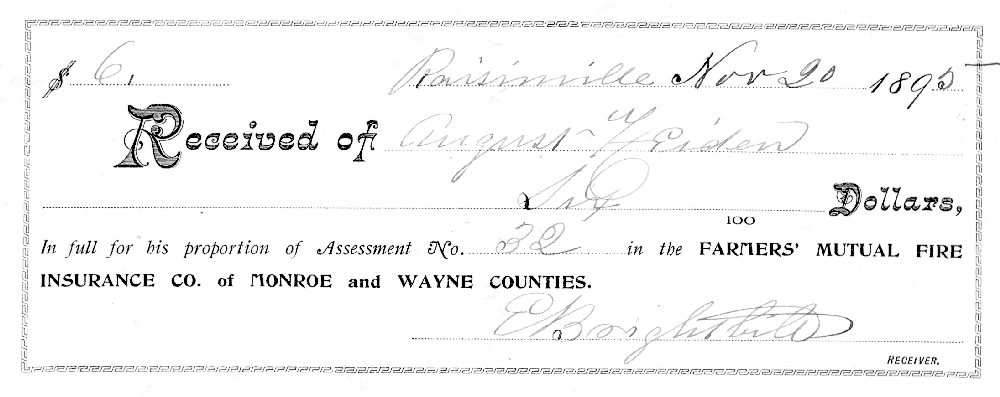 $ 6. Raisinville Nov 20 1895
Received of August Heiden
Six Dollars,
100
In full for his proportion of Assessment No. 32 in the FARMERS' MUTUAL FIRE
INSURANCE CO. of MONROE and WAYNE COUNTIES.
E Brightbill
RECEIVER.